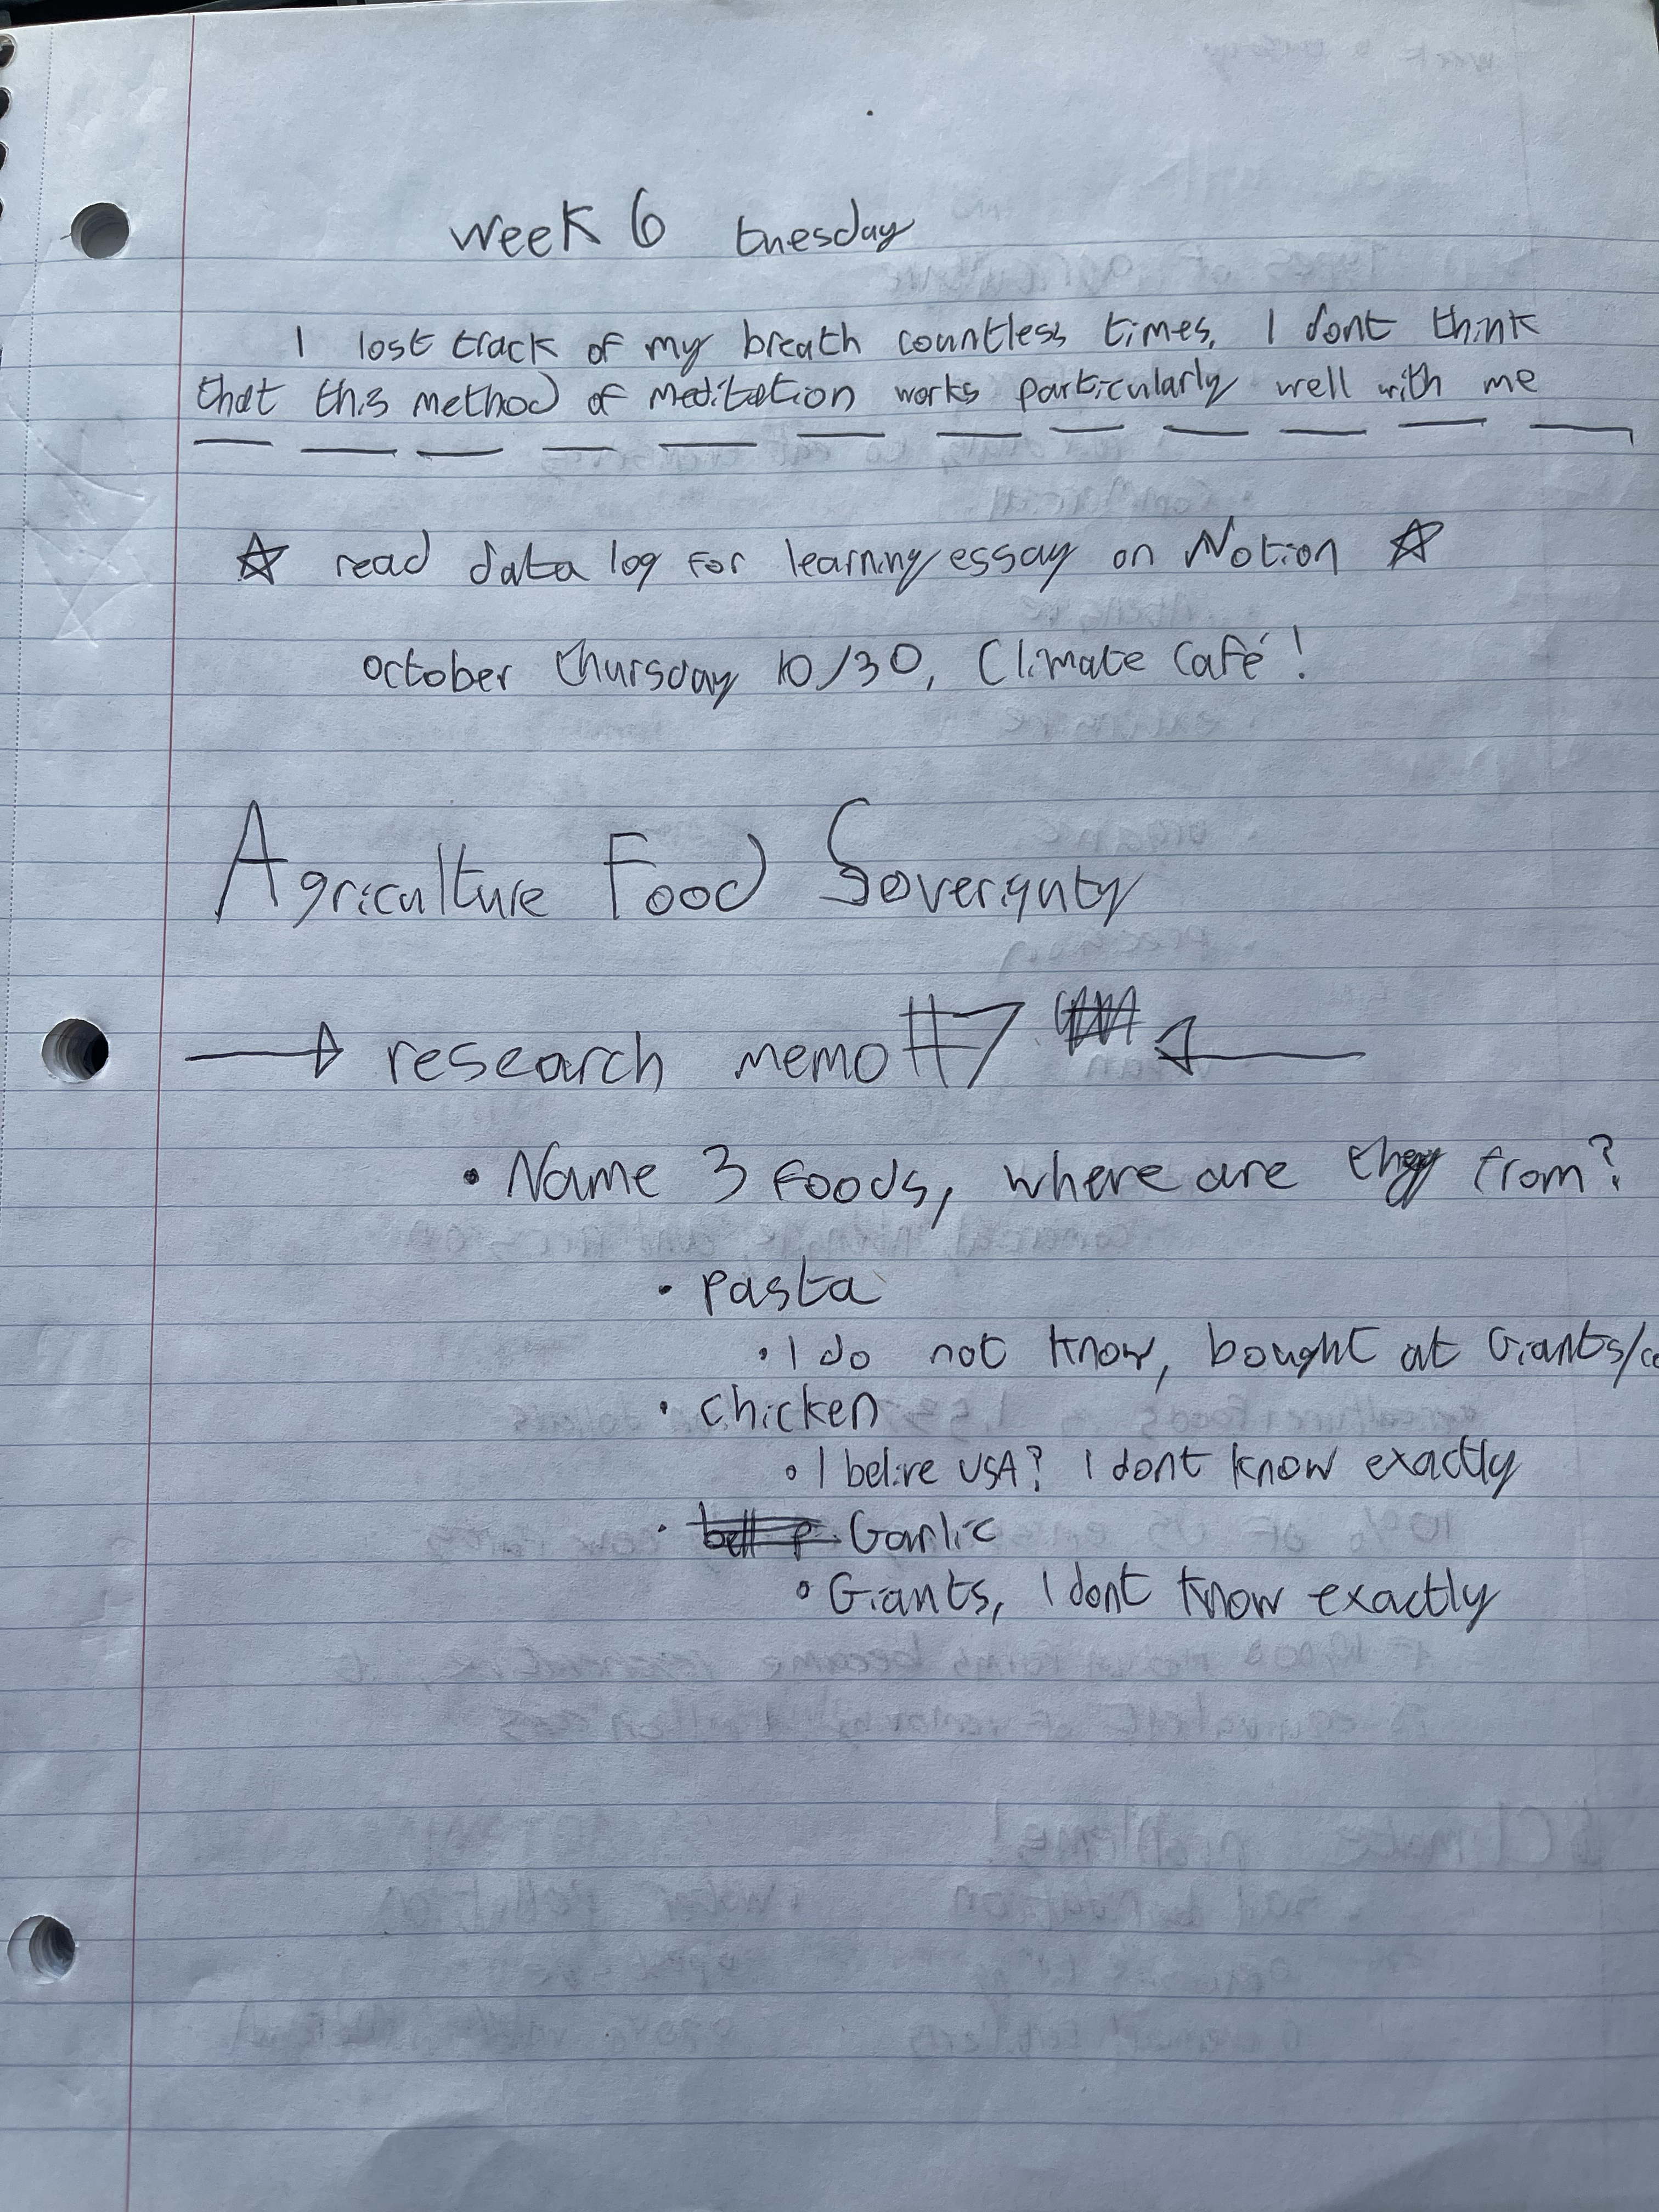 week 6 tuesday
I lost track of my breath countless times, I dont think
that this method of meditation works particularly well with me
☆ read data log for learning essay on Notion ☆
october thursday 10/30, Climate Café!
Agriculture Food Soverignty
→ research memo #7 ←
• Name 3 foods, where are they from?
• pasta
• I do not know, bought at Giants/co
• chicken
• I belive USA? I dont know exactly
• bell p Garlic
• Giants, I dont know exactly